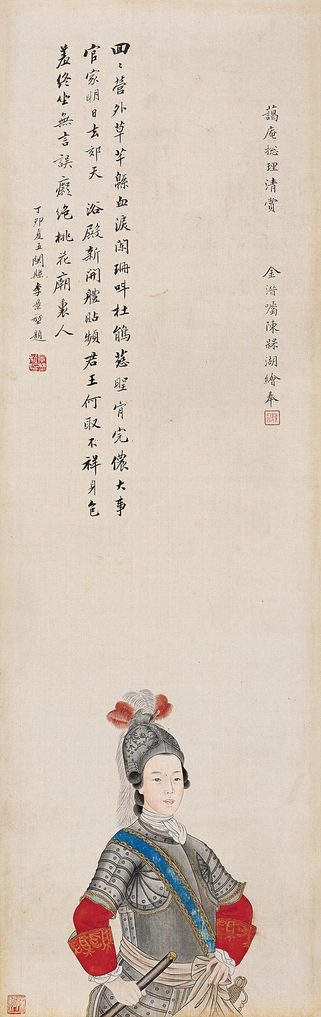 藹庵揔理清賞 金潛囑陳緑湖繪奉
回〻營外草芊緜血淚闌珊叫杜鵑慈聖肯完儂大事
官家明日去郊天 浴殿新開體貼頻君王何取不祥身包
羞終坐無言誤癡絶桃花廟裏人
丁卯夏五閩縣李景堃題